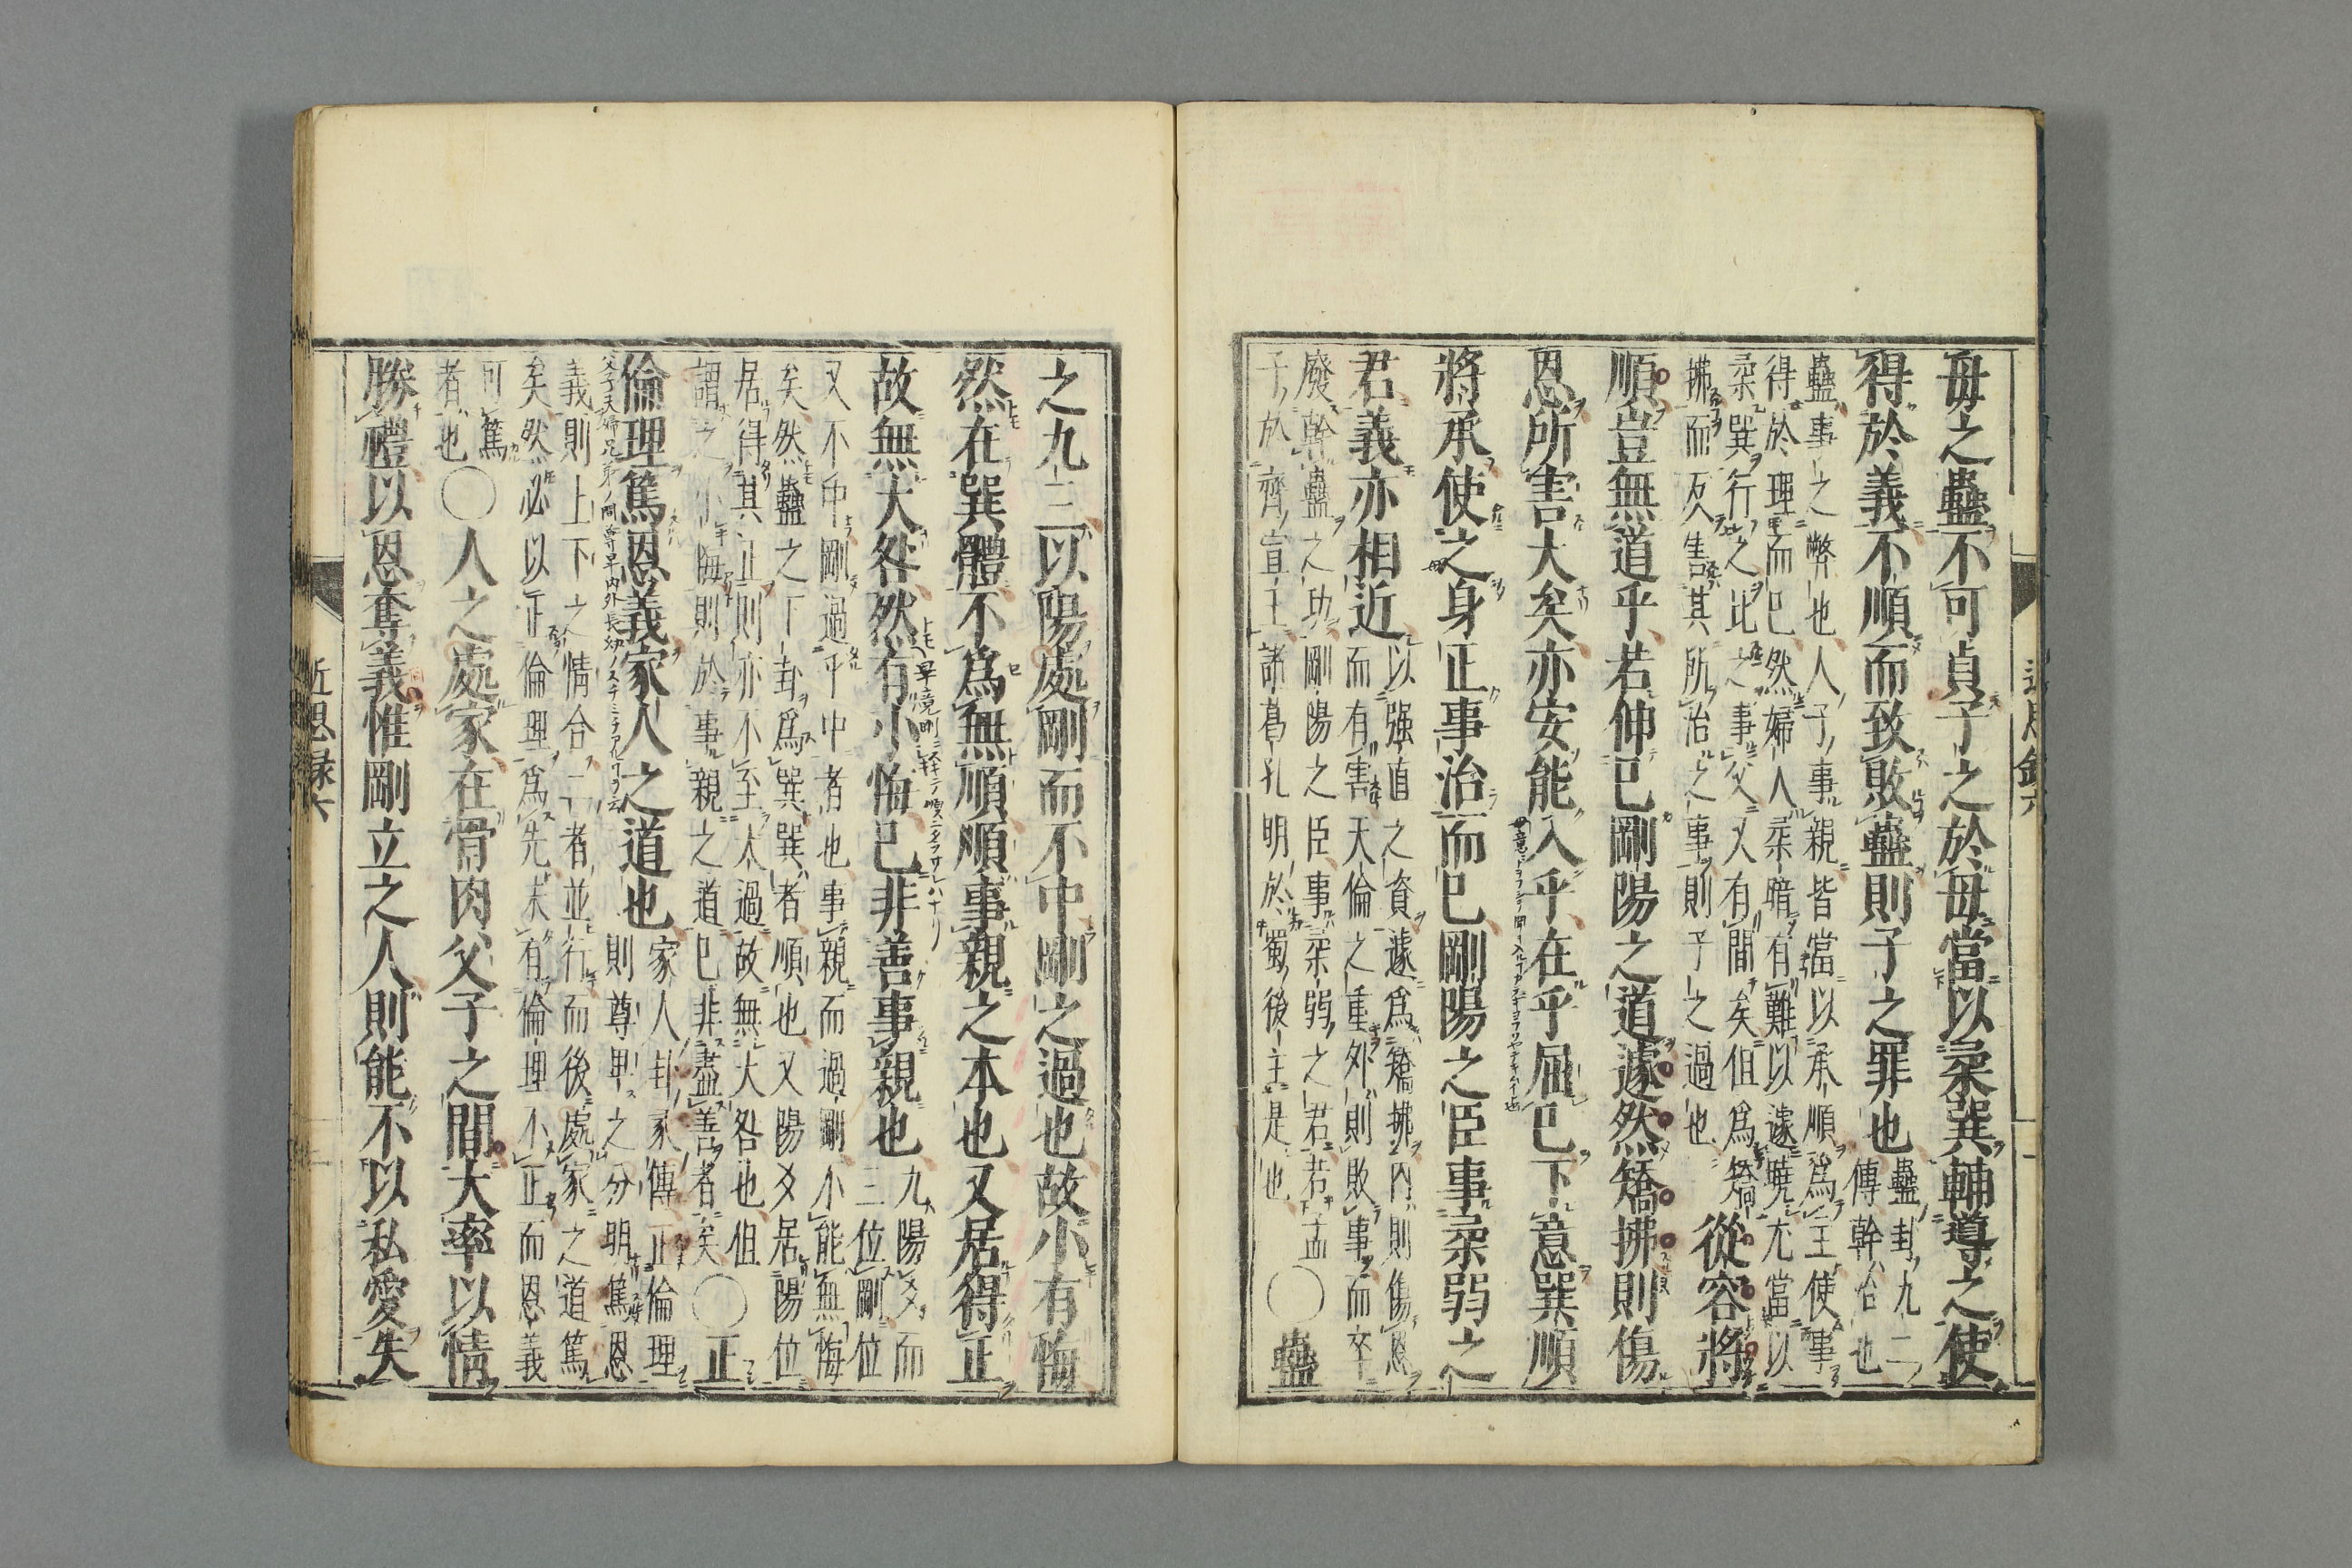 母之蠱不可貞子之於母當以柔巽輔導之使
得於義不順而致敗蠱則子之罪也
蠱卦九二
傳幹治也
蠱事之弊也人子事親皆當以承順爲主使事
得於理而已然婦人柔暗有難以遽曉尤當以
柔巽行之比之事父又有間矣但爲矯
拂而反害其所治之事則子之過也
從容將
順豈無道乎若伸己剛陽之道遽然矯拂則傷
恩所害大矣亦安能入乎在乎屈己下意巽順
將承使之身正事治而已剛陽之臣事柔弱之
君義亦相近
以强直之資遽爲矯拂內則傷恩
而有害天倫之重外則敗事而卒
廢幹蠱之功剛陽之臣事柔弱之君若孟
子於齊宣王諸葛孔明於蜀後主是也
〇蠱
近思錄六
之九三以陽處剛而不中剛之過也故小有悔
然在巽體不爲無順順事親之本也又居得正
故無大咎然有小悔已非善事親也
九陽爻而
三位剛位
又不中剛過乎中者也事親而過剛小能無悔
矣然蠱之下卦爲巽巽者順也又陽爻居陽位
居得其正則亦不至太過故無大咎也但
謂之小悔則於事親之道已非盡善者矣
〇正
倫理篤恩義家人之道也
家人卦家人傳正倫理
則尊卑之分明篤恩
義則上下之情合二者並行而後處家之道篤
矣然必以正倫理爲先未有倫理不正而恩義
可篤
者也
〇人之處家在骨肉父子之間大率以情
勝禮以恩奪義惟剛立之人則能不以私愛失
近思錄六